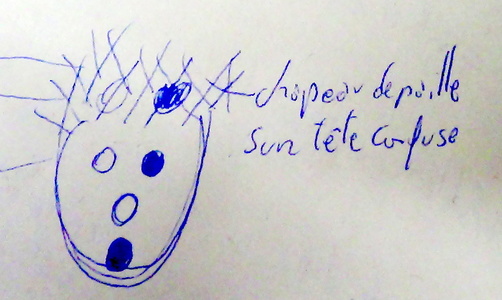 chapeau de paille
sur tête confuse